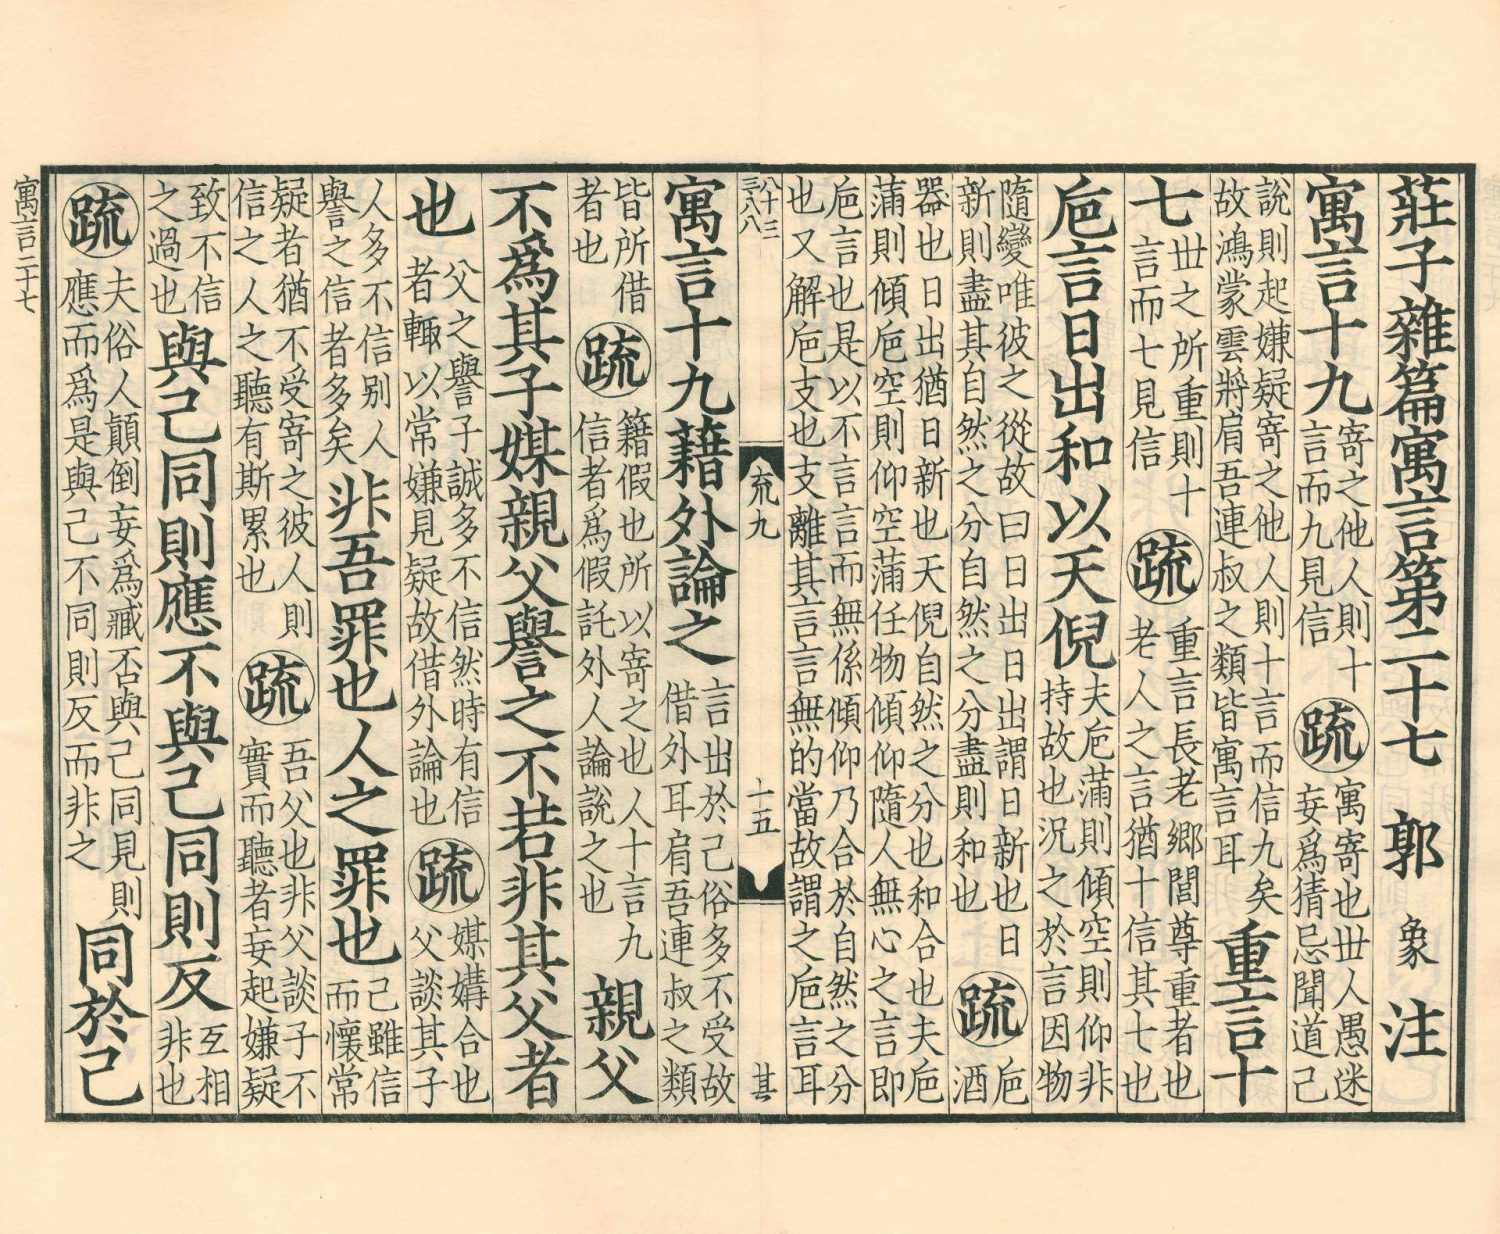 莊子雜篇寓言第二十七　郭象注
寓言十九
寄之他人則十
言而九見信
疏
寓寄也丗人愚迷
妄爲猜忌聞道己
說則起嫌疑寄之他人則十言而信九矣
故鴻蒙雲將肩吾連叔之類皆寓言耳
重言十
七
丗之所重則十
言而七見信
疏
重言長老鄉閭尊重者也
老人之言猶十信其七也
巵言日出和以天倪
夫巵蒲則傾空則仰非
持故也況之於言因物
隨變唯彼之從故曰日出日出謂日新也日
新則盡其自然之分自然之分盡則和也
疏
巵
酒
器也日出猶日新也天倪自然之分也和合也夫巵
蒲則傾巵空則仰空蒲任物傾仰隨人無心之言即
巵言也是以不言言而無係傾仰乃合於自然之分
也又解巵支也支離其言言無的當故謂之巵言耳
八十三
三八八
㐬九
十五
寓言十九藉外論之
言出於己俗多不受故
借外耳肩吾連叔之類
皆所借
者也
疏
籍假也所以寄之也人十言九
信者爲假託外人論說之也
親父
不爲其子媒親父譽之不若非其父者
也
父之譽子誠多不信然時有信
者輙以常嫌見疑故借外論也
疏
媒媾合也
父談其子
人多不信别人
譽之信者多矣
非吾罪也人之罪也
己雖信
而懷常
疑者猶不受寄之彼人則
信之人之聽有斯累也
疏
吾父也非父談子不
實而聽者妄起嫌疑
致不信
之過也
與己同則應不與己同則反
互相
非也
疏
夫俗人顛倒妄爲臧否與己同見則
應而爲是與己不同則反而非之
同於己
寓言二十七